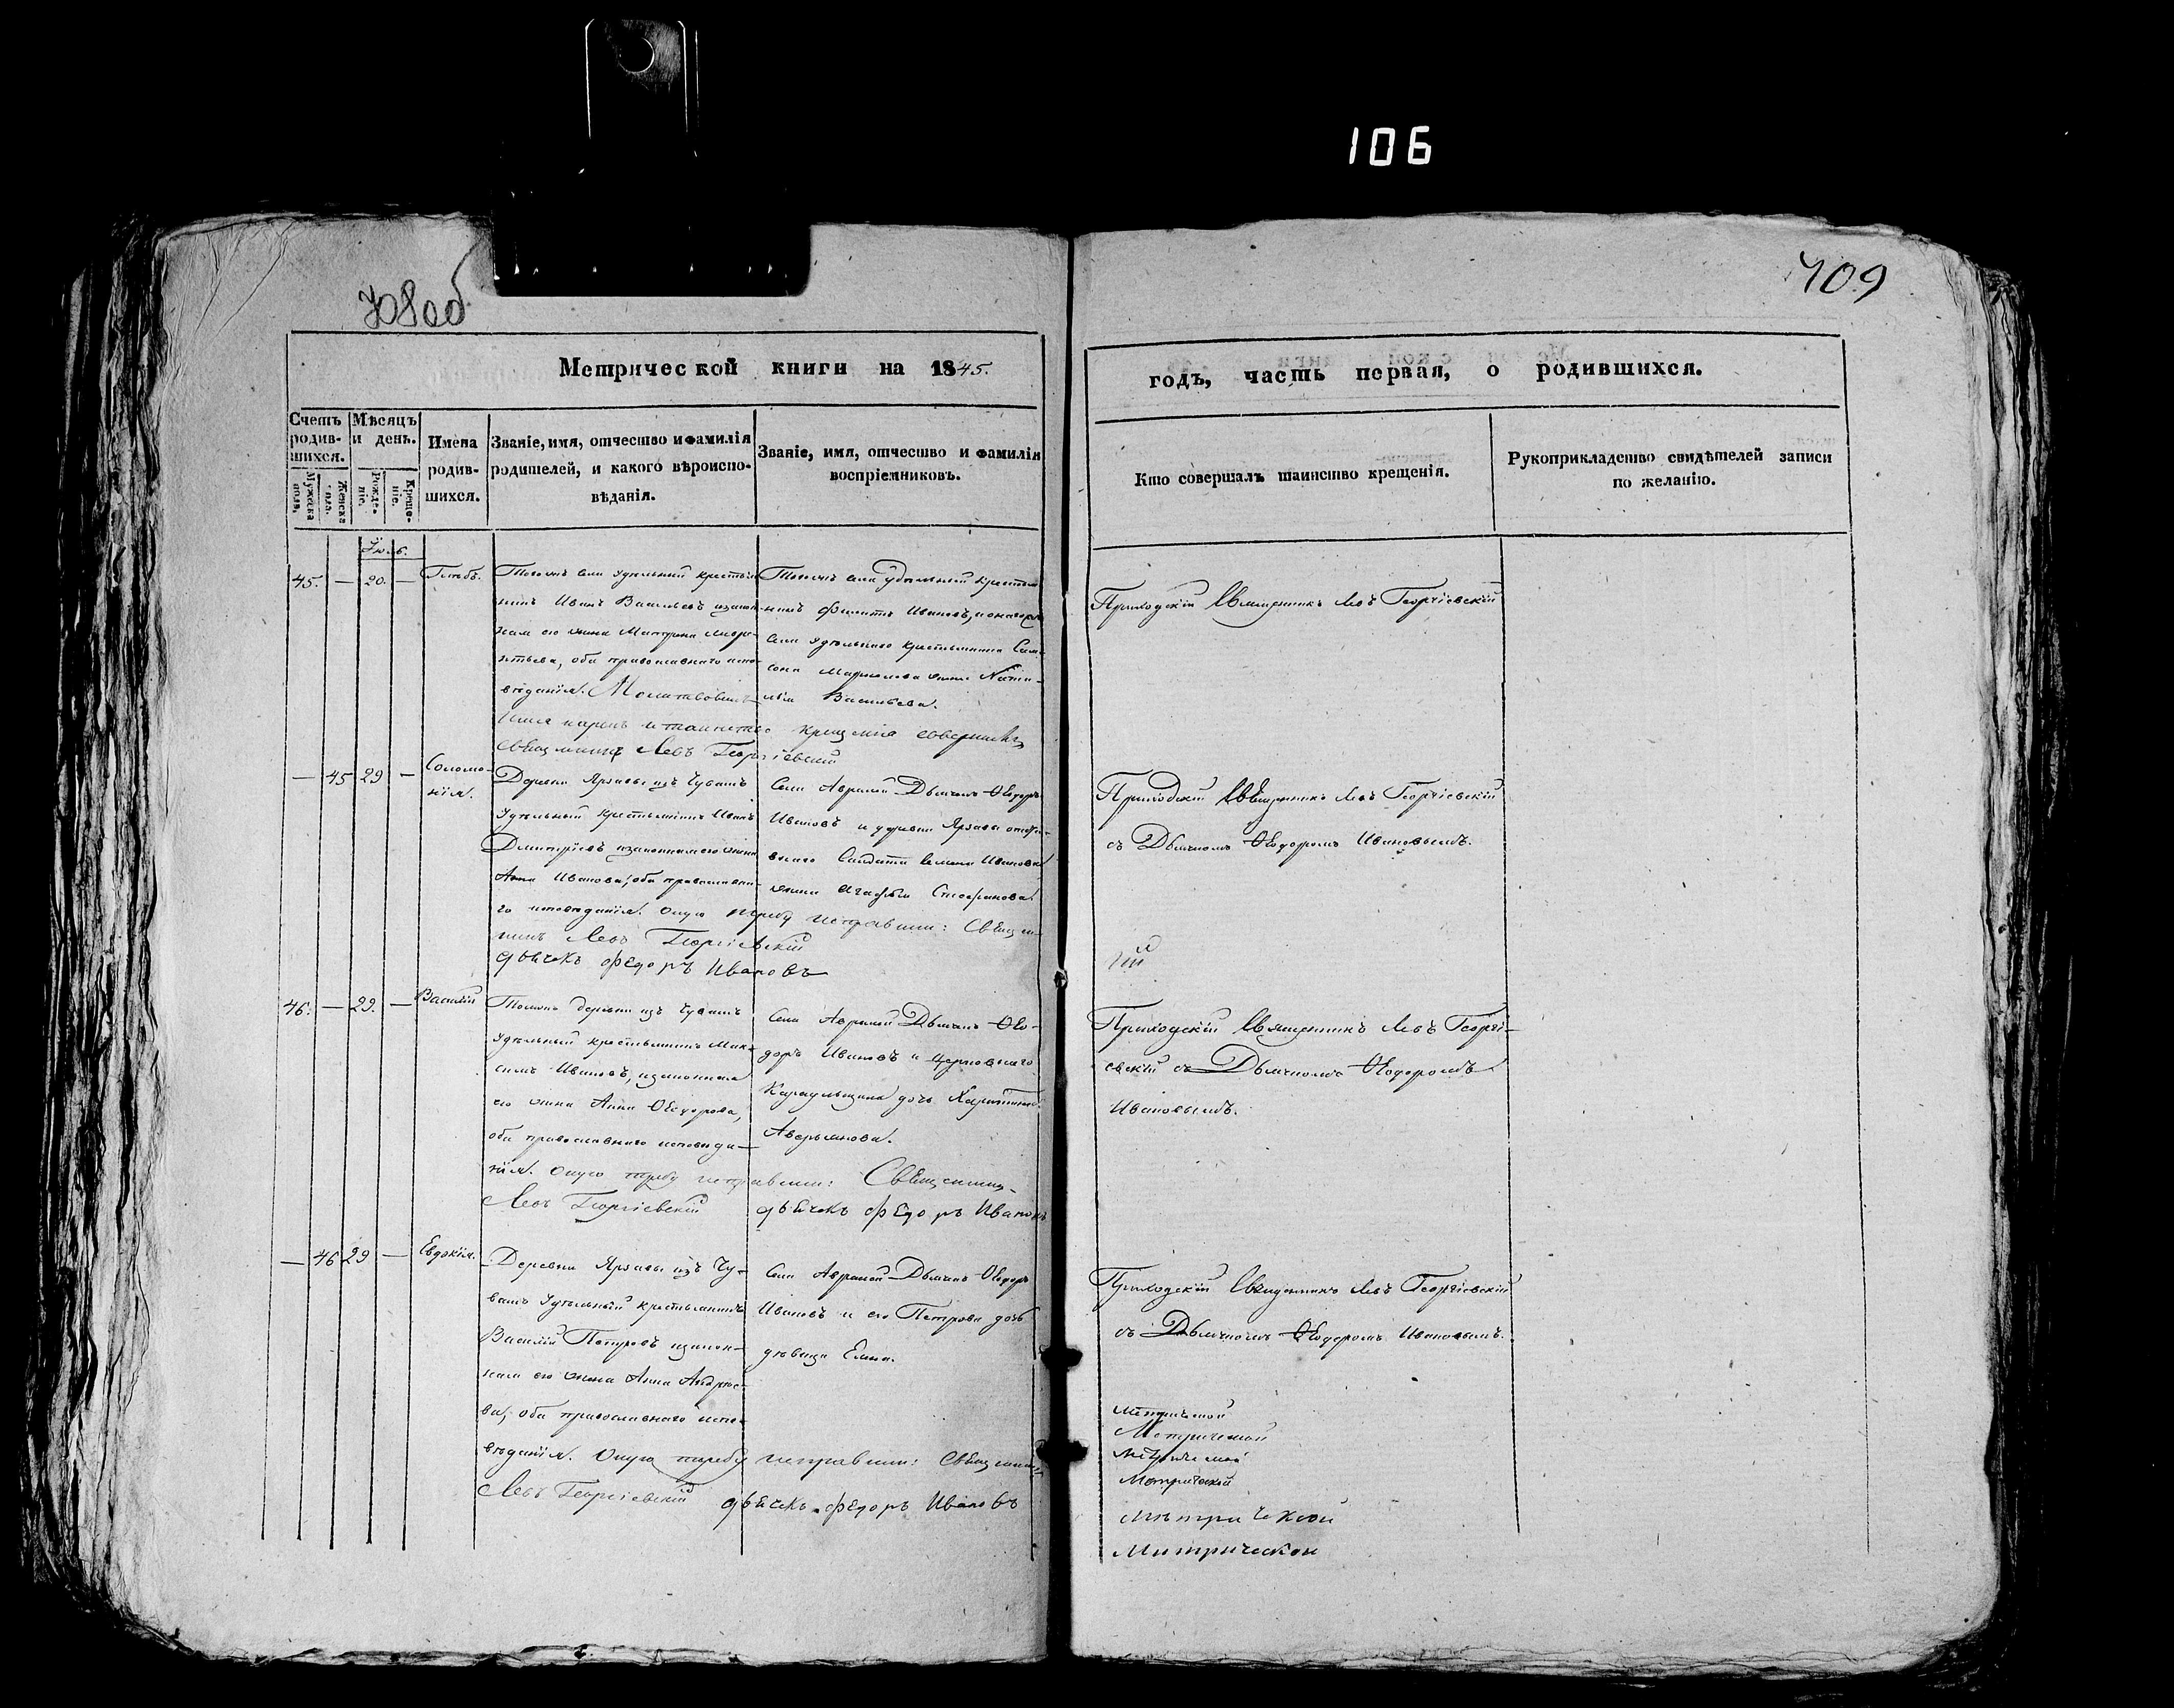 106
408об
409
Метрической книги на 1845.
годъ, часть первая, о родившихся.
Счетъ родив-шихся.
Мужеска пола.
Женска пола.
Мѣсяцъ и день.
Рожде-ніе.
Креще-ніе.
Имена родив-шихся.
Званіе, имя, отчество и фамилія родителей, и какого вѣроиспо-вѣданія.
Званіе, имя, отчество и фамилія воспріемниковъ.
Кто совершалъ таинство крещенія.
Рукоприкладство свидѣтелей записи по желанію.
Іюль.
45. — 20. — Глѣбъ.
Тогожъ села удѣльный крестья-
нинъ Иванъ Васильевъ изакон-
ная его жена Матрона
оба православнаго испо-
вѣданія. Молитвовалъ
имя нарекъ и таинство крещенія совершилъ
священникъ Левъ Георгіевскій
Тогожъ села удѣльный крестья-
нинъ Филиппъ Ивановъ, и
села удѣльнаго крестьянина Сам-
сона жена Ната-
лія Васильева.
Приходскій Священникъ Левъ Георгіевскій
— 45 29 — Соломо-
нія.
Деревни изъ Чувашъ
удѣльный крестьянинъ Иванъ
Дмитріевъ изаконная его жена
Анна Иванова, оба православна-
го исповѣданія. Оную требу исправили: Священ-
никъ Левъ Георгіевскій
дьячекъ Федоръ Ивановъ
Села Авралей Дьячекъ Ѳеодоръ
Ивановъ и деревни
Солдата Семена Иванова
жена Агафья Стефанова.
Приходскій Священникъ Левъ Георгіевскій
съ Дьячкомъ Ѳеодоромъ Ивановымъ.
ій
46. — 29. — Василій
Тойжъ деревни изъ Чувашъ
удѣльный крестьянинъ Мак-
симъ Ивановъ, изаконная
его жена Анна Ѳеодорова,
оба православнаго исповѣда-
нія. Оную требу исправили: Священникъ
Левъ Георгіевскій дьячекъ Федоръ Ивановъ
Села Авралей Дьячекъ Ѳео-
доръ Ивановъ и церковнаго
Караульщика дочь
Аверьянова.
Приходскій Священникъ Левъ Георгі-
евскій съ Дьячкомъ Ѳеодоромъ
Ивановымъ.
— 46 29 — Евдокія.
Деревни изъ Чу-
вашъ удѣльный крестьянинъ
Василій Петровъ изакон-
ная его жена Анна Андрее-
ва, оба православнаго испо-
вѣданія. Оную требу исправили: Священникъ
Левъ Георгіевскій дьячекъ Федоръ Ивановъ
Села Авралей Дьячекъ Ѳеодоръ
Ивановъ и его Петрова дочь
дѣвица Елена.
Приходскій Священникъ Левъ Георгіевскій
съ Дьячкомъ Ѳеодоромъ Ивановымъ.
Метрической
Метрической
Метрической
Метрической
Метрической
Митрической